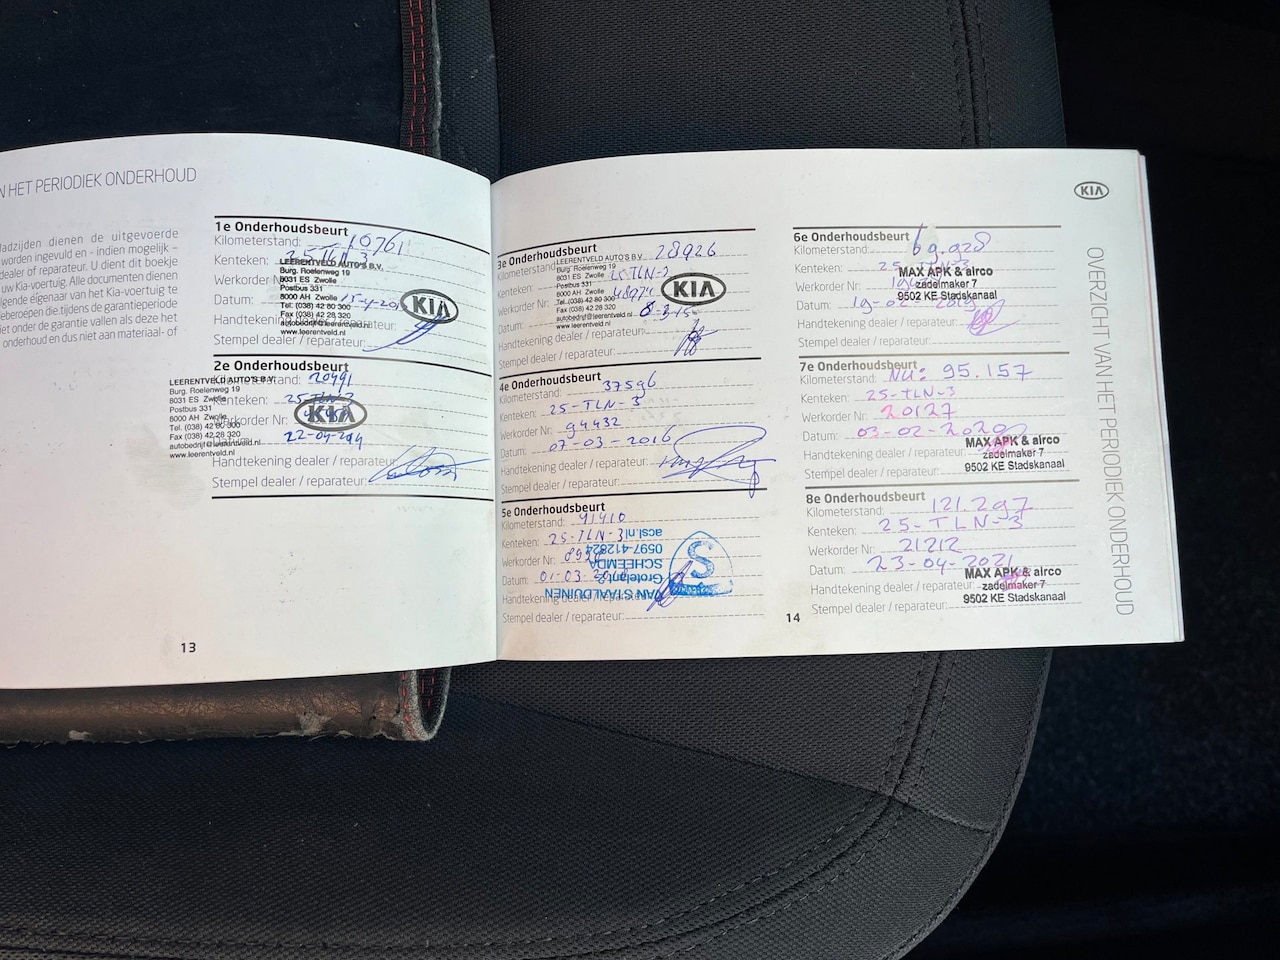 N HET PERIODIEK ONDERHOUD
dienen de uitgevoerde
worden ingevuld en - indien mogelijk -
dealer of reparateur. U dient dit boekje
uw Kia-voertuig. Alle documenten dienen
eigenaar van het Kia-voertuig te
die tijdens de garantieperiode
onder de garantie vallen als deze het
onderhoud en dus niet aan materiaal- of
1e Onderhoudsbeurt
Kilometerstand: 16761
Kenteken: 25-TLN-3
LEERENTVELD AUTO'S B.V.
Burg. Roelenweg 19
Werkorder 8031 ES Zwolle
Postbus 331
Datum: 8000 AH Zwolle 15-4-20
Tel: (038) 42 80 300
Fax (038) 42 28 320
KIA
autobedrijf@leerentveld.nl
www.leerentveld.nl
Stempel dealer / reparateur:
2e Onderhoudsbeurt
LEERENTVELD AUTO'S B.V. 20491
Burg. Roelenweg 19
8031 ES Zwolle 25-TLN-3
Postbus 331
8000 AH Zwolle
KIA
Tel: (038) 42 80 300
Fax (038) 42 28 320
autobedrijf@leerentveld.nl
www.leerentveld.nl
Handtekening dealer / reparateur:
Stempel dealer / reparateur:
13
3e Onderhoudsbeurt
Kilometerstand 28926
LEERENTVELD AUTO'S B.V.
Burg. Roelenweg 19
Kenteken: 8031 ES Zwolle
Postbus 331
Werkorder Nr: 8000 AH Zwolle 48974
KIA
Tel: (038) 42 80 300
Datum: Fax (038) 42 28 320 8-3-15
autobedrijf@leerentveld.nl
www.leerentveld.nl
Stempel dealer / reparateur:
4e Onderhoudsbeurt
Kilometerstand: 37596
Kenteken: 25-TLN-3
Werkorder Nr: 94432
Datum: 07-03-2016
Handtekening dealer / reparateur:
Stempel dealer / reparateur:
5e Onderhoudsbeurt
Kilometerstand: 41410
Kenteken: 25-TLN-3
acsl.nl
Werkorder Nr:
0597-412824
SCHEEMDA
Datum: 01-03-
VAN STAALDUINEN
S
Stempel dealer / reparateur:
6e Onderhoudsbeurt
Kilometerstand: 69.928
Kenteken: 25-TLN-3
MAX APK & airco
Werkorder Nr:
zadelmaker 7
Datum: 9502 KE Stadskanaal
Handtekening dealer / reparateur:
Stempel dealer / reparateur:
7e Onderhoudsbeurt
Kilometerstand: NU: 95.157
Kenteken: 25-TLN-3
Werkorder Nr: 20127
Datum: 03-02-2020
MAX APK & airco
Handtekening dealer / reparateur:
zadelmaker 7
Stempel dealer / reparateur: 9502 KE Stadskanaal
8e Onderhoudsbeurt
Kilometerstand: 121.297
Kenteken: 25-TLN-3
Werkorder Nr: 21212
Datum: 23-04-2021
MAX APK & airco
Handtekening dealer / reparateur:
zadelmaker 7
9502 KE Stadskanaal
Stempel dealer / reparateur:
14
KIA
OVERZICHT VAN HET PERIODIEK ONDERHOUD